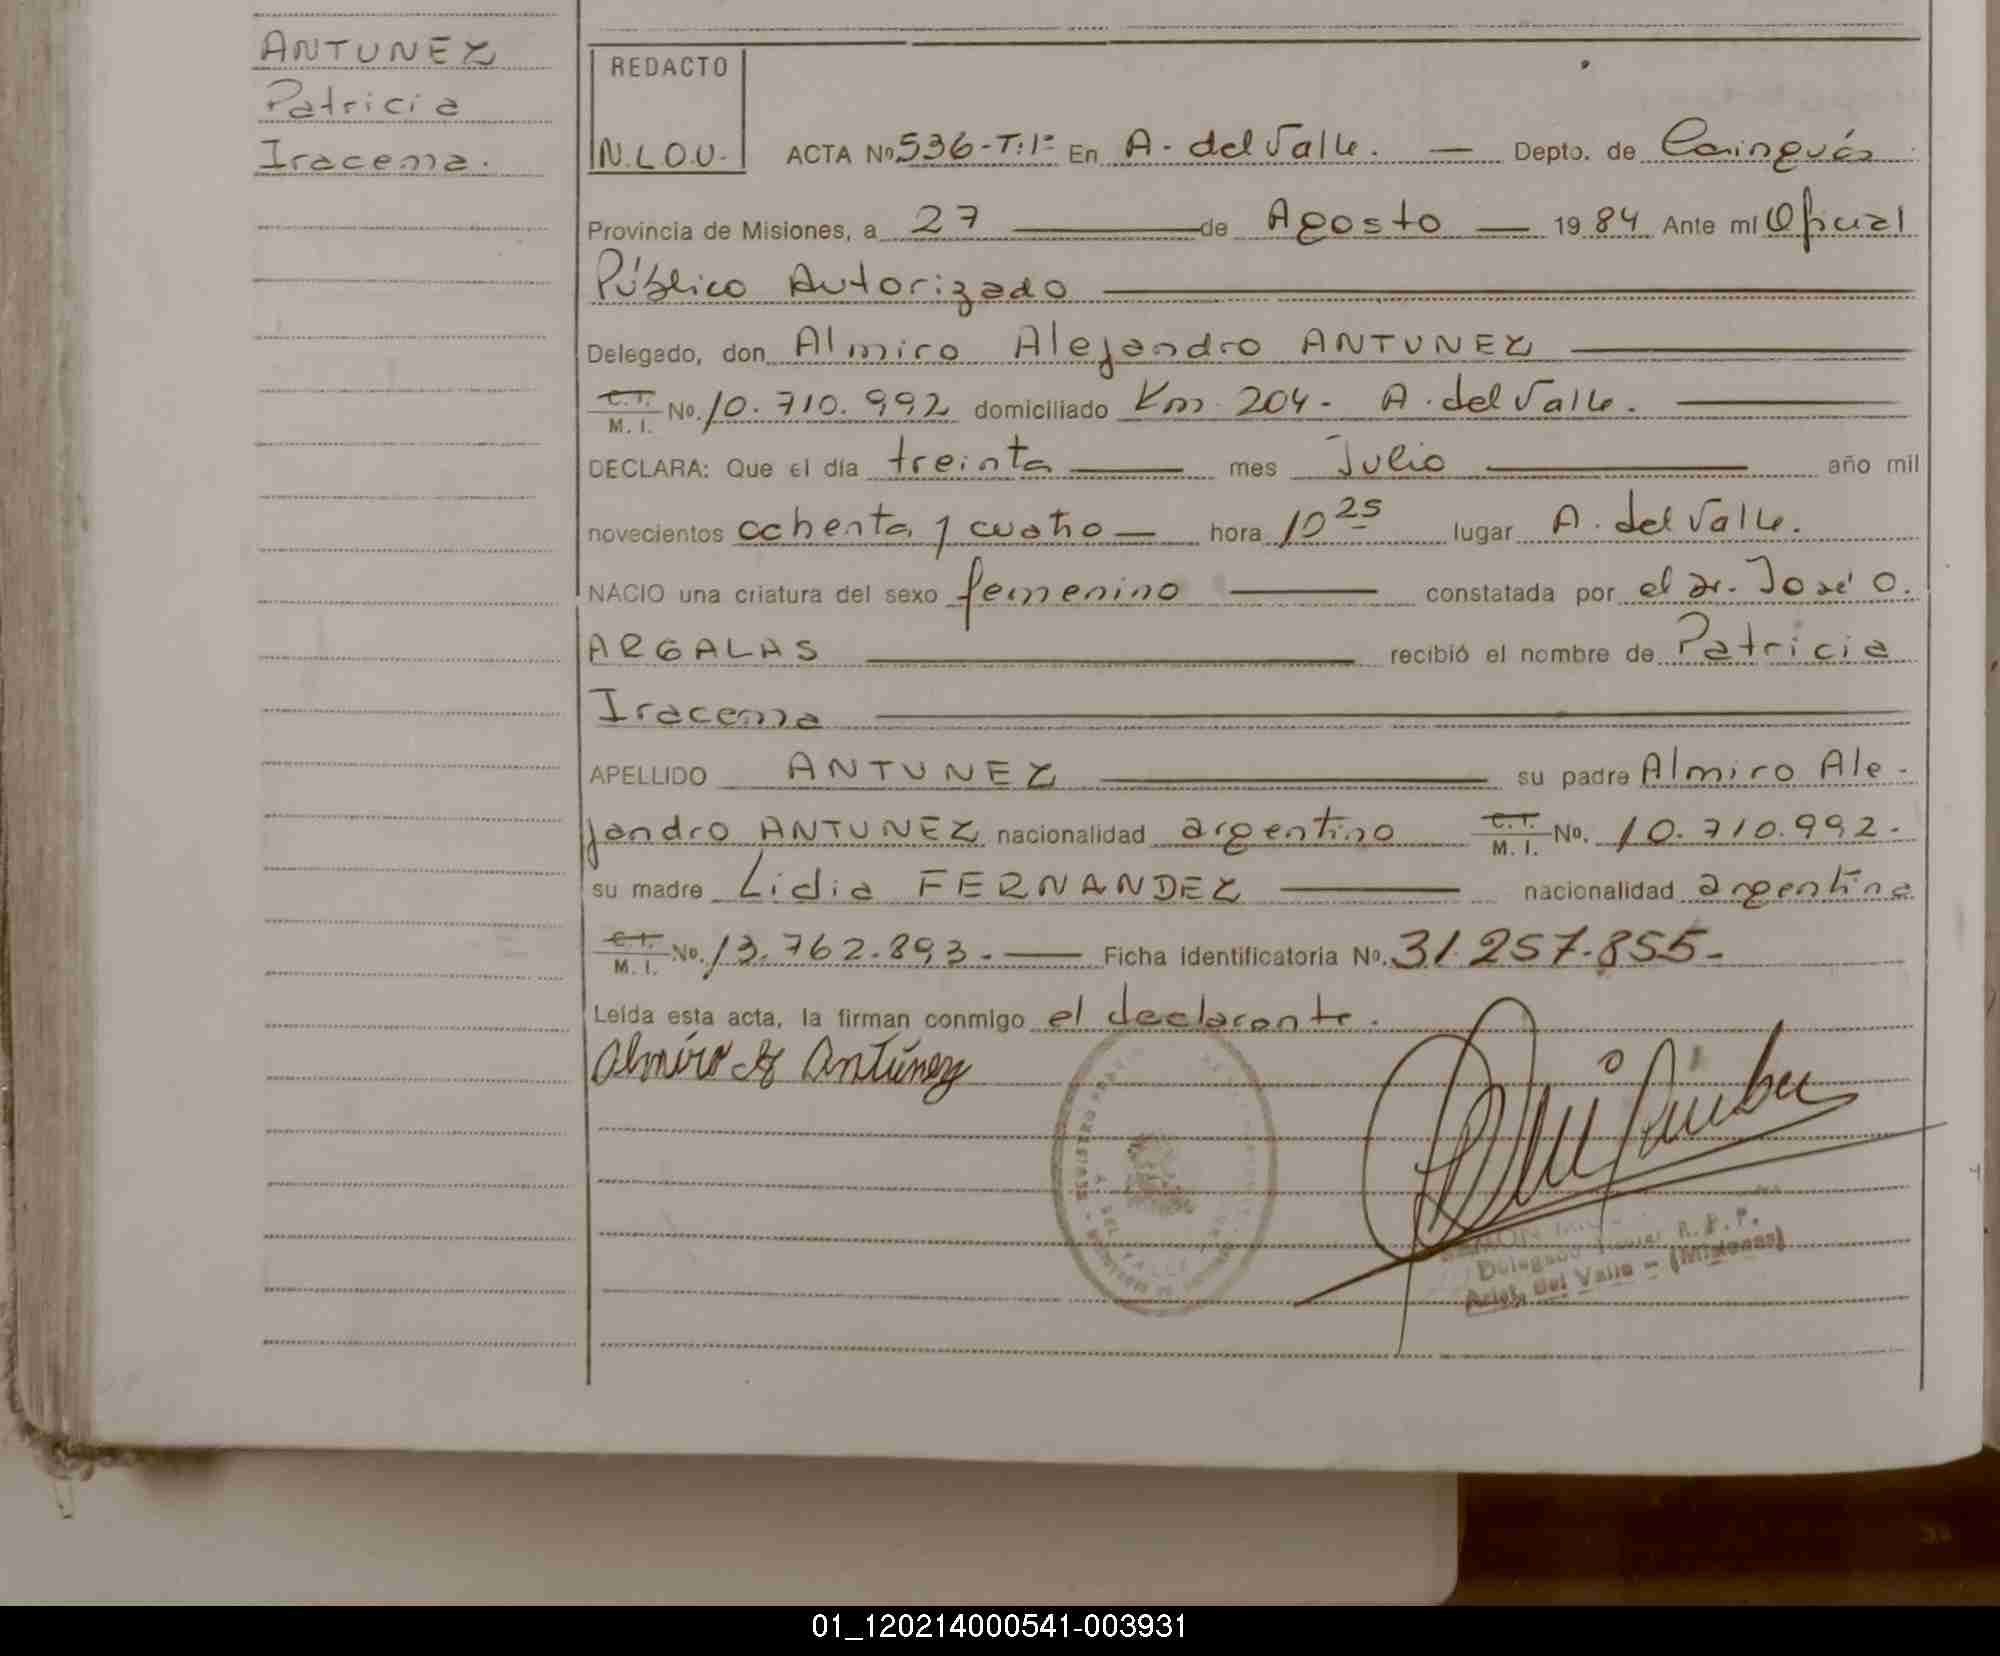 ANTUNEZ
Patricia
Iracema.
REDACTO
N.L.O.U.
ACTA No 536-T:1º En A. del Valle. — Depto. de Cainguás
Provincia de Misiones, a 27 — de Agosto — 1984 Ante mi Oficial
Público Autorizado
Delegado, don Almiro Alejandro ANTUNEZ
C.I. M. I. No. 10.710.992 domiciliado Km. 204. A. del Valle.
DECLARA: Que el día treinta — mes Julio — año mil
novecientos ochenta y cuatro — hora 10 25 lugar A. del Valle.
NACIO una criatura del sexo femenino — constatada por el Dr. José O.
ARGALAS — recibió el nombre de Patricia
Iracema
APELLIDO ANTUNEZ — su padre Almiro Ale-
jandro ANTUNEZ nacionalidad argentino C.I. M. I. No. 10.710.992.
su madre Lidia FERNANDEZ — nacionalidad argentina
C.I. M. I. No. 13.762.893. — Ficha identificatoria No. 31.257.855-
Leída esta acta, la firman conmigo el declarante.
Almiro A Antúnez
REGISTRO
DEL VALLE
RAMON
Delegado Titular R. P. P.
Arist. del Valle - (Misiones)
01_120214000541-003931